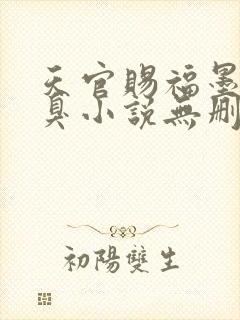 天官賜福墨
臭小說無刪
初陽雙生